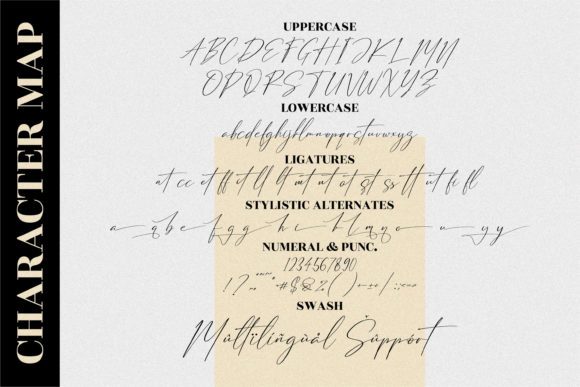 CHARACTER MAP
UPPERCASE
ABCDEFGHIJKLMN
OPQRSTUVWXYZ
LOWERCASE
abcdefghijklmnopqrstuvwxyz
LIGATURES
at cc et ff it ll lt mt nt ot st ss tt ut fi fl
STYLISTIC ALTERNATES
a q b e f g g h i k l m n o u y y
NUMERAL & PUNC.
1234567890
!?
#$&%()
SWASH
Múltïlíñgùâl Šüppôrt